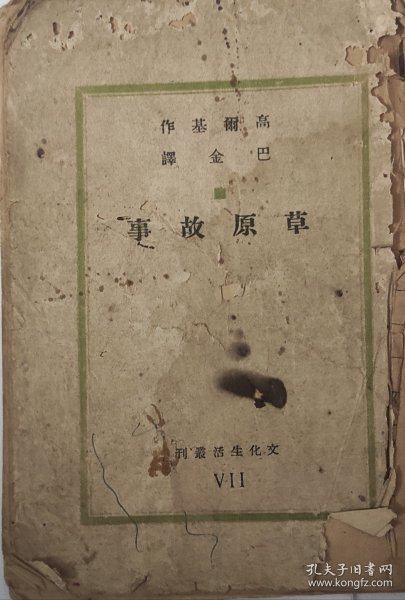 高爾基作
巴金譯
草原故事
文化生活叢刊
VII
孔夫子旧书网
www.kongfz.com